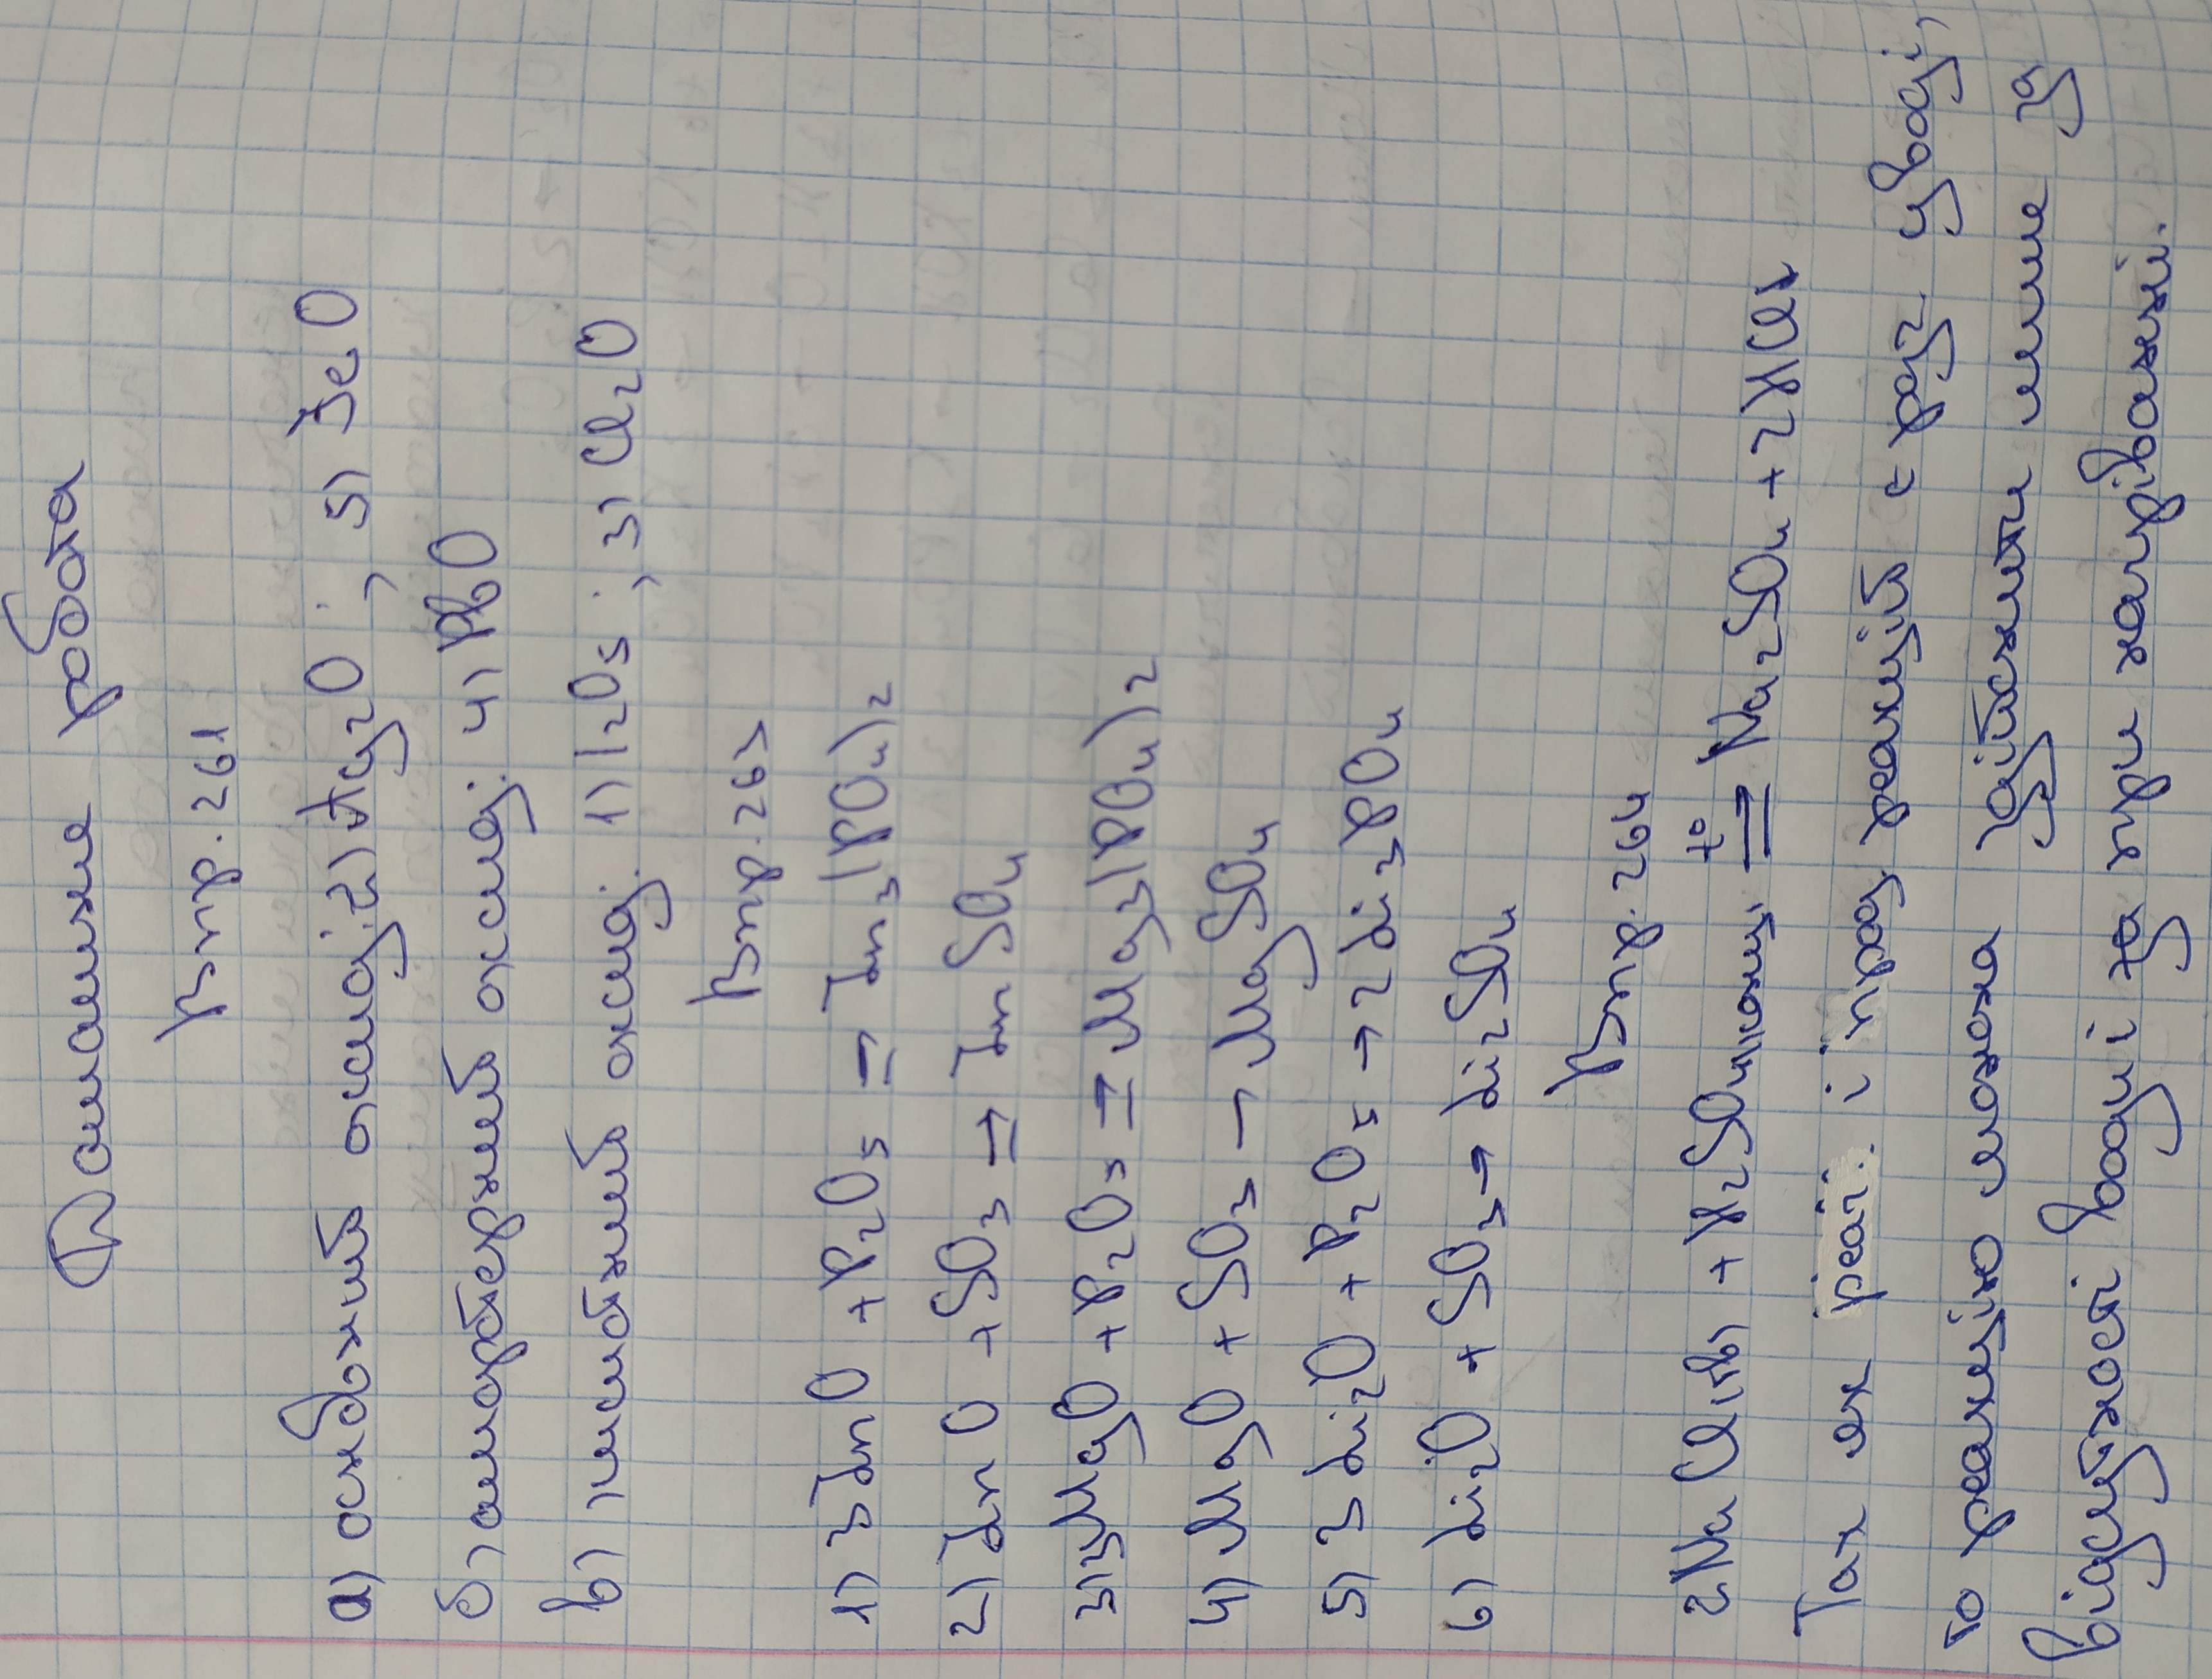 Домашнє робота
Впр. 261
а) оснОвний оксид: 2) Ag2O ; 5) FeO
б) амфотерний оксид: 4) PbO
в) кислотний оксид: 1) I2O5 ; 3) Cl2O
Впр. 263
1) 3ZnO + P2O5 = Zn3(PO4)2
2) ZnO + SO3 → ZnSO4
3) 3MgO + P2O5 = Mg3(PO4)2
4) MgO + SO3 → MgSO4
5) 3Li2O + P2O5 → 2Li3PO4
6) Li2O + SO3 → Li2SO4
Впр. 264
2NaCl(тв) + H2SO4(конц) t° = Na2SO4 + 2HCl↑
Так як реаг. і прод. реакції є газ. у воді,
то реакцію можна здійснити лише за
відсутності води та при нагріванні.